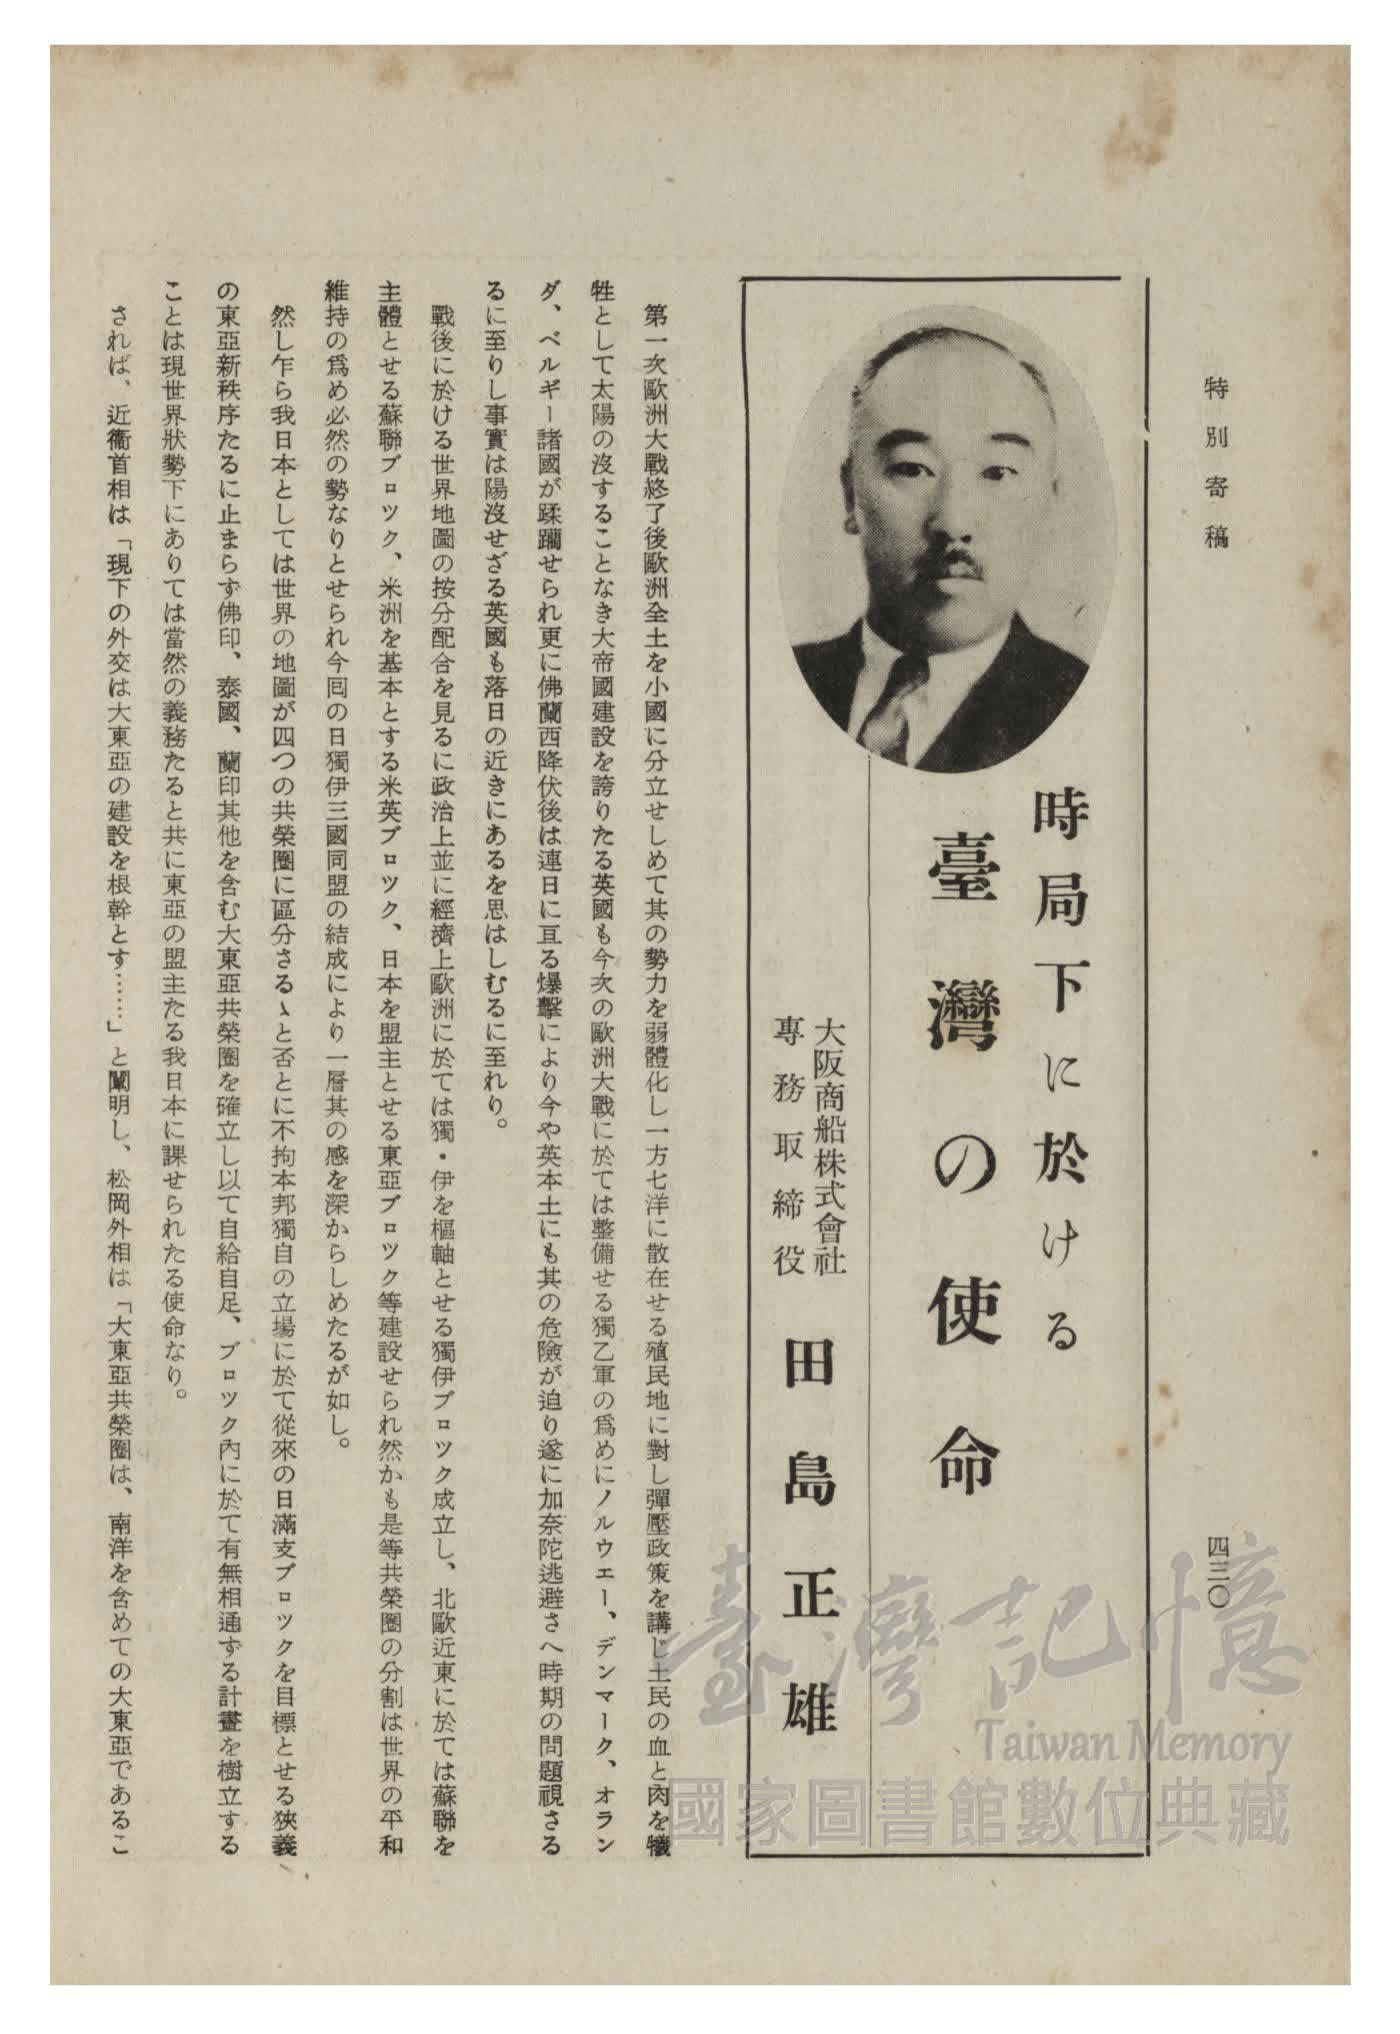 特別寄稿
四三〇
時局下に於ける
臺灣の使命
大阪商船株式會社
專務取締役
田島正雄
第一次歐洲大戰終了後歐洲全土を小國に分立せしめて其の勢力を弱體化し一方七洋に散在せる殖民地に對し彈壓政策を講じ土民の血と肉を犧
牲として太陽の沒することなき大帝國建設を誇りたる英國も今次の歐洲大戰に於ては整備せる獨乙軍の爲めにノルウエー、デンマーク、オラン
ダ、ベルギー諸國が蹂躪せられ更に佛蘭西降伏後は連日に亘る爆擊により今や英本土にも其の危險が迫り遂に加奈陀逃避さへ時期の問題視さる
るに至りし事實は陽沒せざる英國も落日の近きにあるを思はしむるに至れり。
戰後に於ける世界地圖の按分配合を見るに政治上並に經濟上歐洲に於ては獨・伊を樞軸とせる獨伊ブロツク成立し、北歐近東に於ては蘇聯を
主體とせる蘇聯ブロツク、米洲を基本とする米英ブロツク、日本を盟主とせる東亞ブロツク等建設せられ然かも是等共榮圈の分割は世界の平和
維持の爲め必然の勢なりとせられ今囘の日獨伊三國同盟の結成により一層其の感を深からしめたるが如し。
然し乍ら我日本としては世界の地圖が四つの共榮圈に區分さるゝと否とに不拘本邦獨自の立場に於て從來の日滿支ブロツクを目標とせる狹義
の東亞新秩序たるに止まらず佛印、泰國、蘭印其他を含む大東亞共榮圈を確立し以て自給自足、ブロツク內に於て有無相通ずる計畫を樹立する
ことは現世界狀勢下にありては當然の義務たると共に東亞の盟主たる我日本に課せられたる使命なり。
されば、近衞首相は「現下の外交は大東亞の建設を根幹とす……」と闡明し、松岡外相は「大東亞共榮圈は、南洋を含めての大東亞であるこ
臺灣記憶
Taiwan Memory
國家圖書館數位典藏